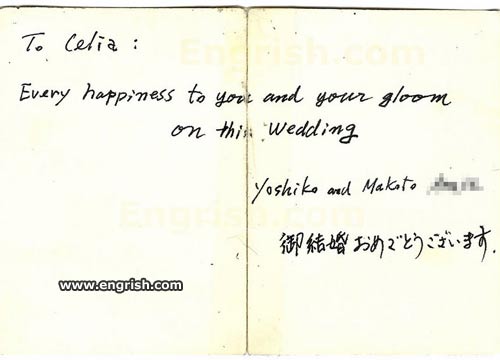 Engrish.com
To Celia :
Every happiness to you and your gloom
on this Wedding
Yoshiko and Makoto
Engrish.com
御結婚おめでとうございます.
www.engrish.com